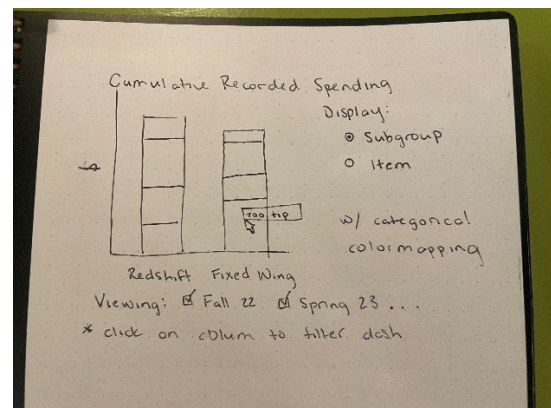 Cumulative Recorded Spending
Display:
Subgroup
Item
$
Too tip
w/ categorical
colormapping
Redshift Fixed Wing
Viewing: Fall 22 Spring 23 ...
* click on colum to filter dash